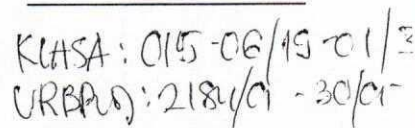 KLASA: 015-06/19-01/3
URBROJ: 2184/01-30/01-